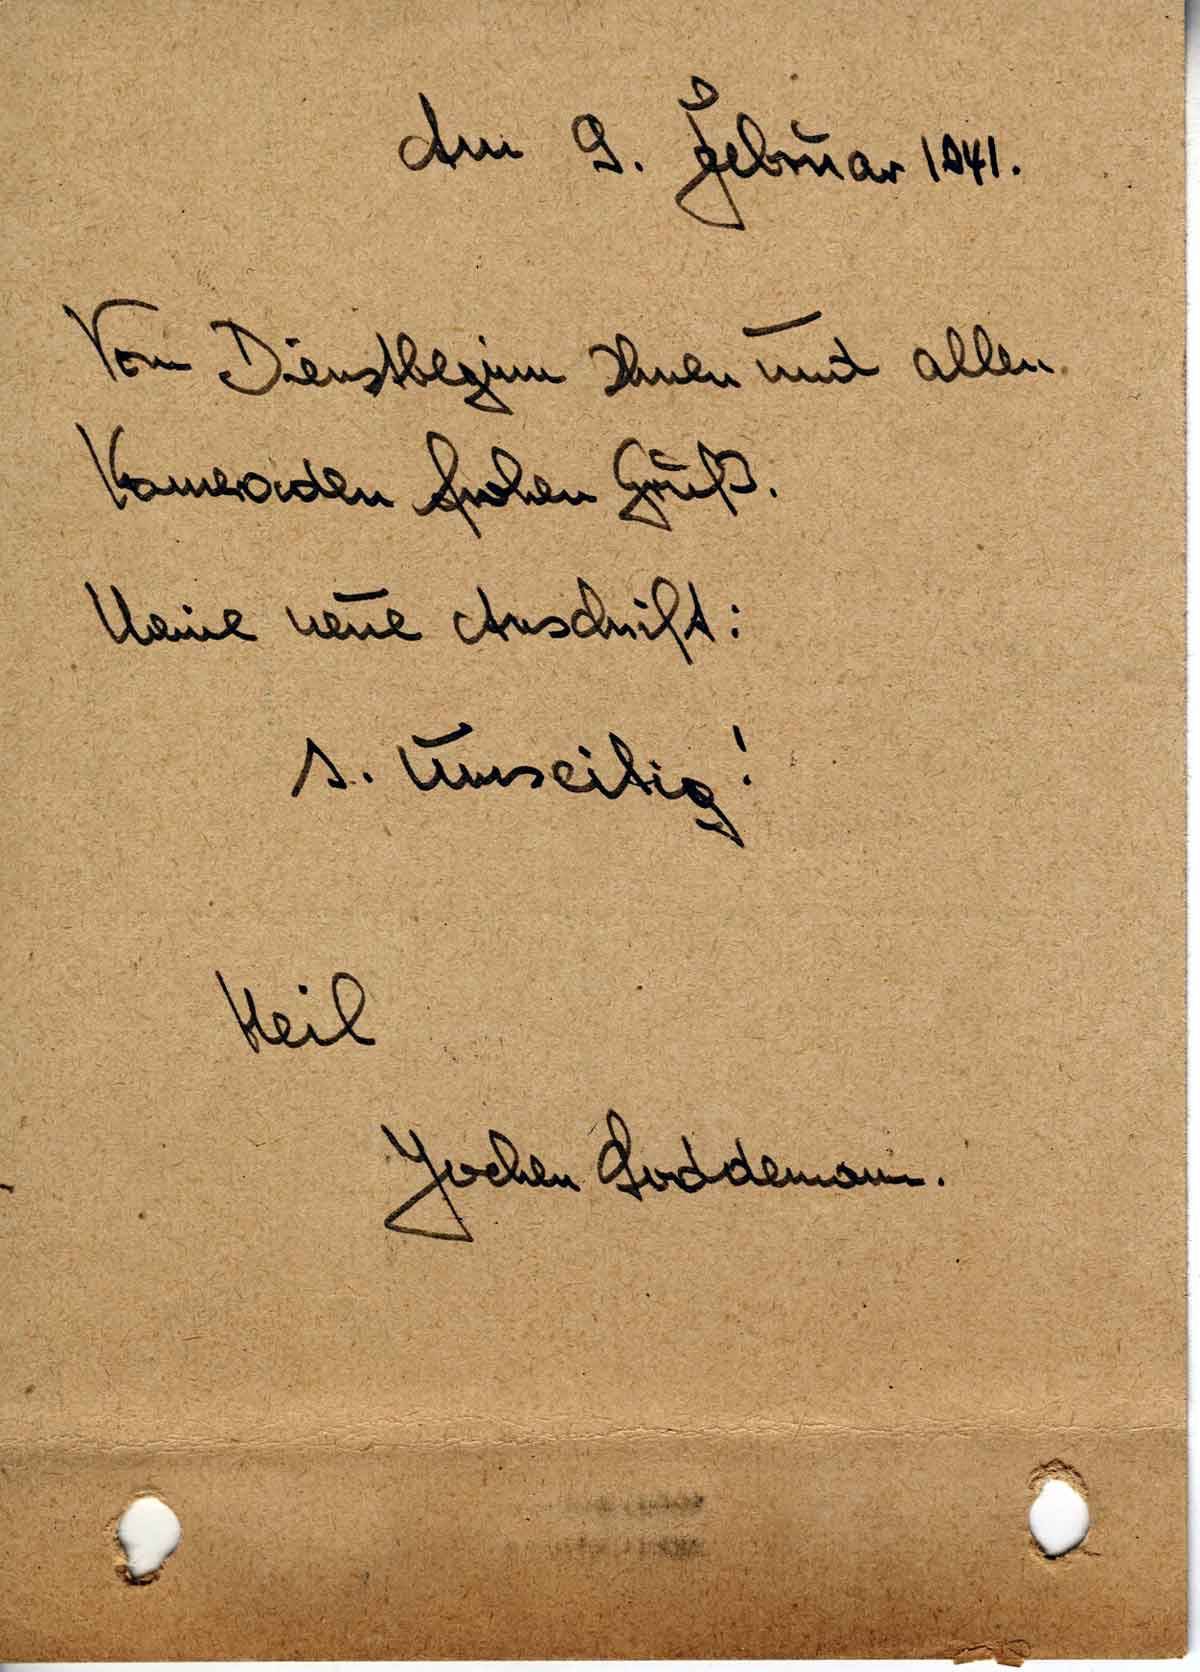 Am 9. Februar 1941.
Vom Dienstbeginn Ihnen und allen
Kameraden frohen Gruß.
Meine neue Anschrift:
s. Umseitig!
Heil
Jochen Goddemann.